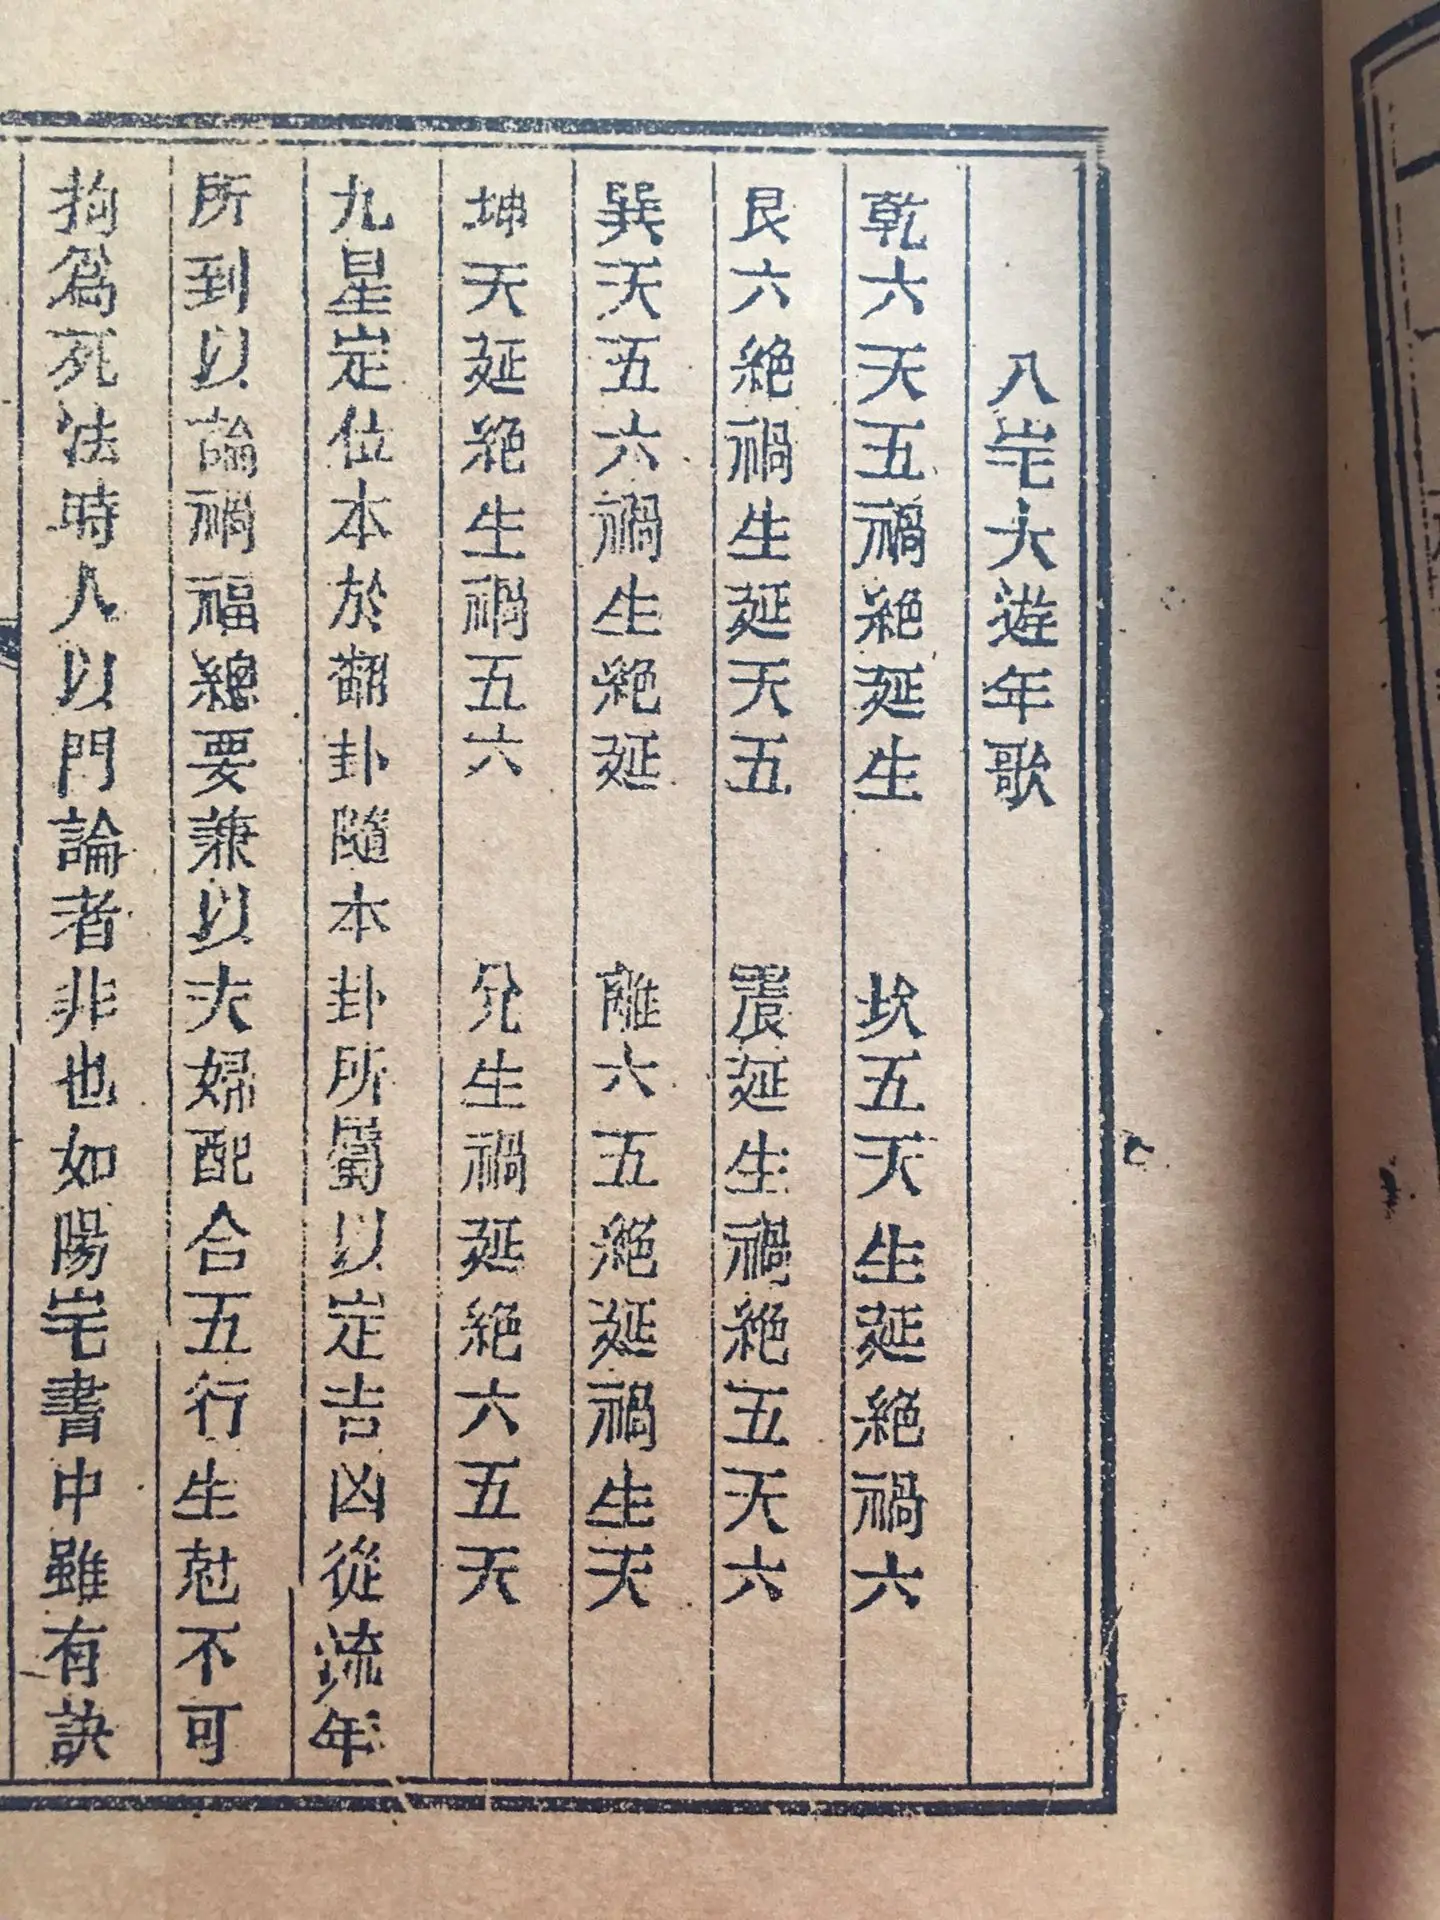 八宅大遊年歌
乾六天五禍絕延生　坎五天生延絕禍六
艮六絕禍生延天五　震延生禍絕五天六
巽天五六禍生絕延　離六五絕延禍生天
坤天延絕生禍五六　兌生禍延絕六五天
九星定位本於翻卦隨本卦所屬以定吉凶從流年
所到以論禍福總要兼以夫婦配合五行生尅不可
拘爲死法時人以門論者非也如陽宅書中雖有訣